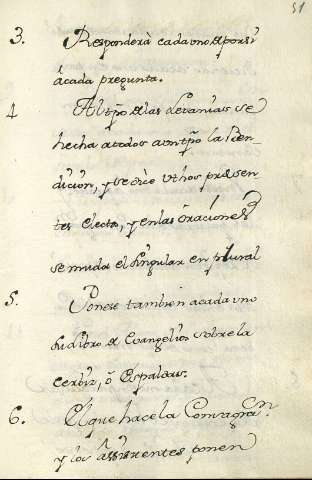 51
3. Responderà cada uno de por sì
àcada pregunta.
4 Al tpõ de las Letanìas se
hecha atodos aun tpõ la Ben-
dición, y se dice Vt hos præsen
tes electos, y en las òraciones
se muda el singular en plural
5. Ponese tambien acada uno
su Libro de Evangelios sobre la
Cerbiz, ò Espaldas.
6. El que hace la Consagracn.
y los Assistentes ponen